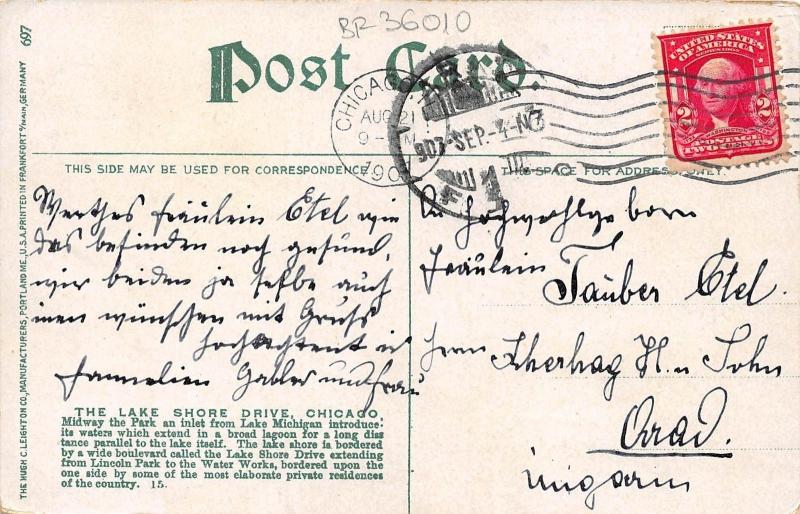 BR-36010
697
Post Card.
CHICAGO
AUG 21
9-
190
ARAD
907-SEP.-4-N7
UNITED STATES
OF AMERICA
SERIES 1902
2 2
WASHINGTON
POSTAGE
TWO CENTS
THIS SIDE MAY BE USED FOR CORRESPONDENCE
THIS SPACE FOR ADDRESS ONLY.
Werthes fräulein Etel wie
das befinden noch gesund,
wir beiden ja selbe auch
wünschen mit Gruss
familien Gabler und frau
An Hochwohlge born
Fräulein
Tauber Etel.
Herrn
H. u Sohn
Arad.
Ungarn
THE LAKE SHORE DRIVE, CHICAGO,
Midway the Park an inlet from Lake Michigan introduce:
its waters which extend in a broad lagoon for a long dis
tance parallel to the lake itself. The lake shore is bordered
by a wide boulevard called the Lake Shore Drive extending
from Lincoln Park to the Water Works, bordered upon the
one side by some of the most elaborate private residences
of the country. 15.
THE HUGH C. LEIGHTON CO., MANUFACTURERS, PORTLAND ME., U.S.A. PRINTED IN FRANKFORT o/MAIN, GERMANY